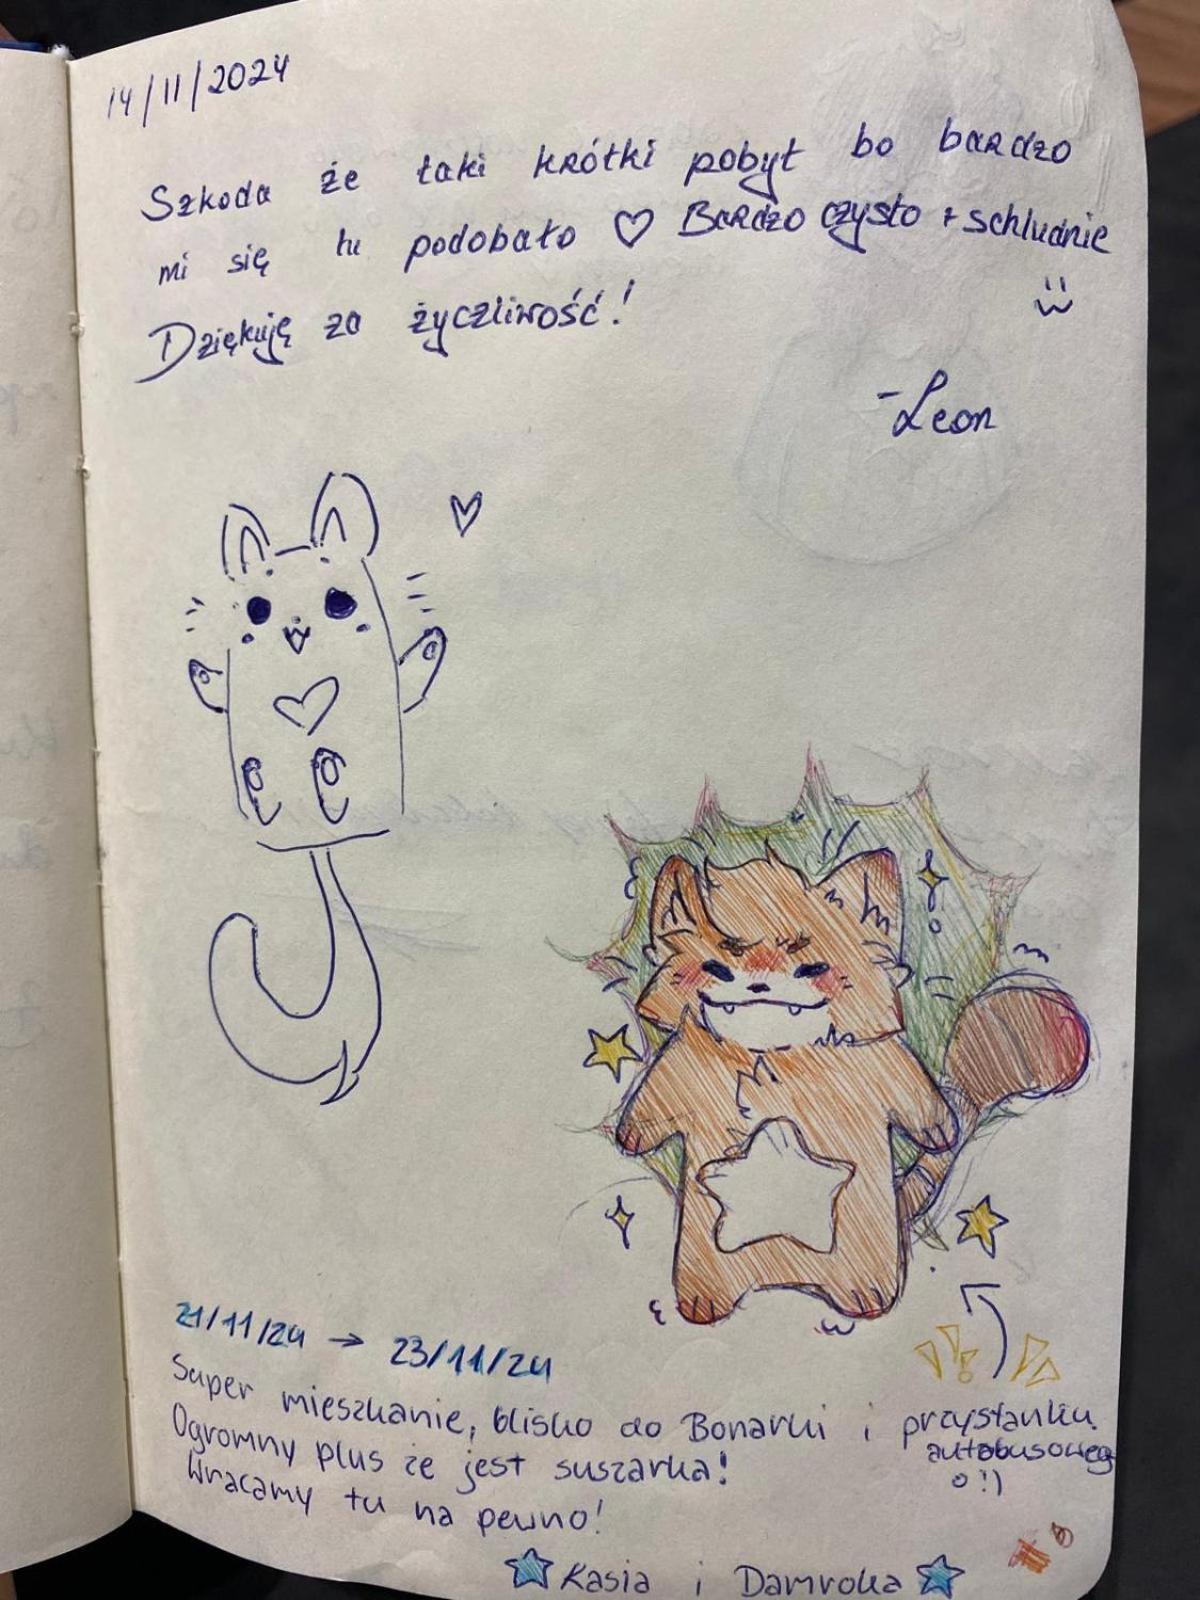 14/11/2024
Szkoda że taki krótki pobyt bo bardzo
mi się tu podobało ♡ Bardzo czysto + schludnie
Dziękuję za życzliwość!
-Leon
21/11/24 → 23/11/24
Super mieszkanie, blisko do Bonarki i przystanku
autobusoweg
o !)
Ogromny plus że jest suszarka!
Wracamy tu na pewno!
Kasia i Damroka